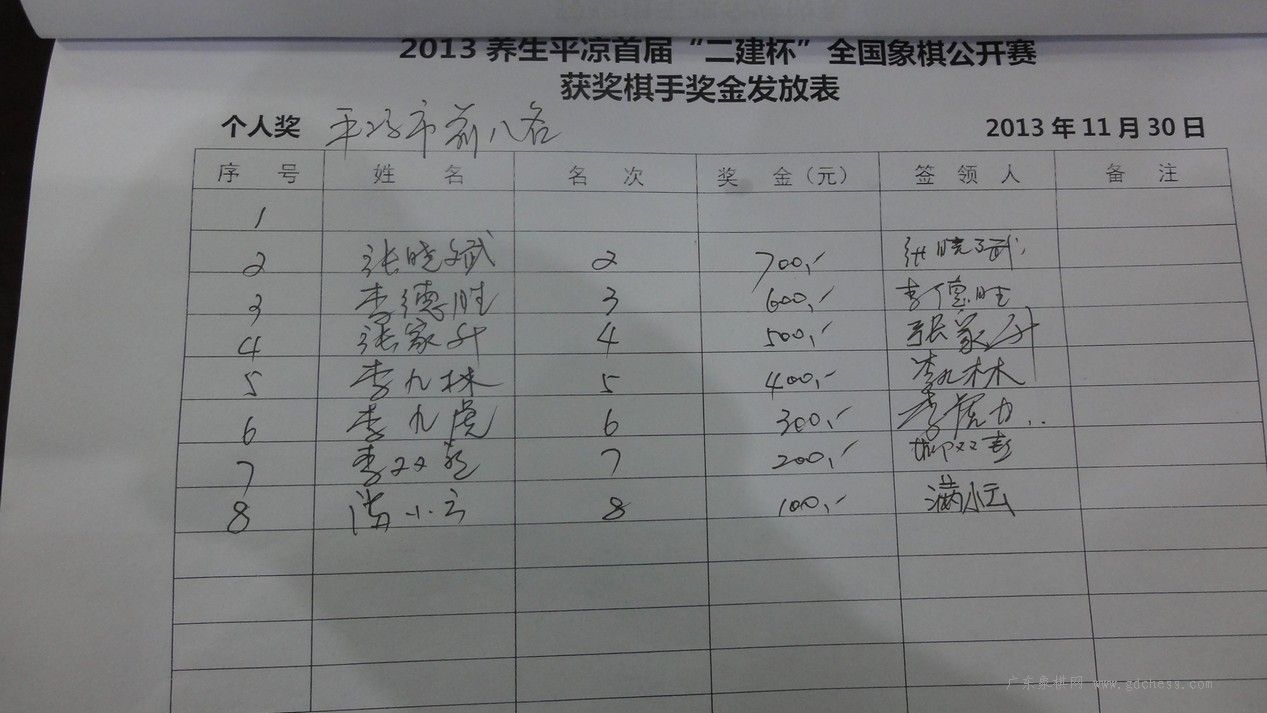 2013 养生平凉首届“二建杯”全国象棋公开赛
获奖棋手奖金发放表
个人奖 平凉市前八名 2013 年 11 月 30 日
序 号 姓 名 名 次 奖 金（元） 签 领 人 备 注
1
2 张晓斌 2 700 张晓斌
3 李德胜 3 600 李德胜
4 张家升 4 500 张家升
5 李九林 5 400 李九林
6 李九虎 6 300
7 7 200
8 满小云 8 100 满小云
广东象棋网 www.gdchess.com